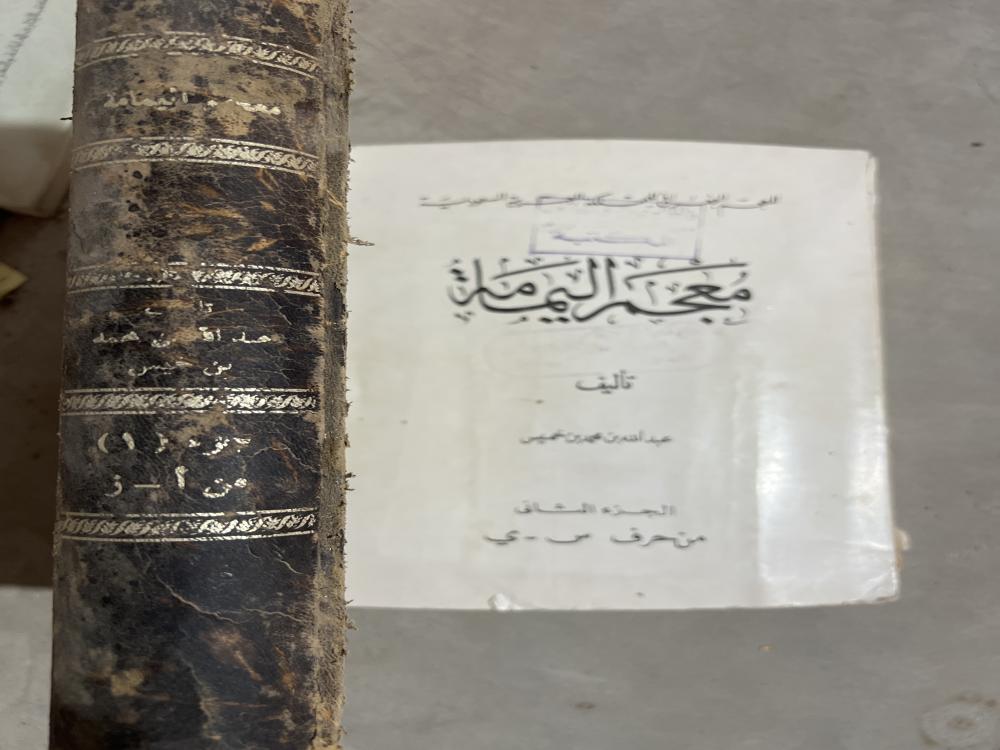 معجم اليمامة
تأليف
عبدالله بن محمد
بن خميس
جزء (١)
من أ - ز
المعجم الجغرافي للمملكة العربية السعودية
مكتبة
معجم اليمامة
تأليف
عبدالله بن محمد بن خميس
الجزء الثاني
من حرف س - ي